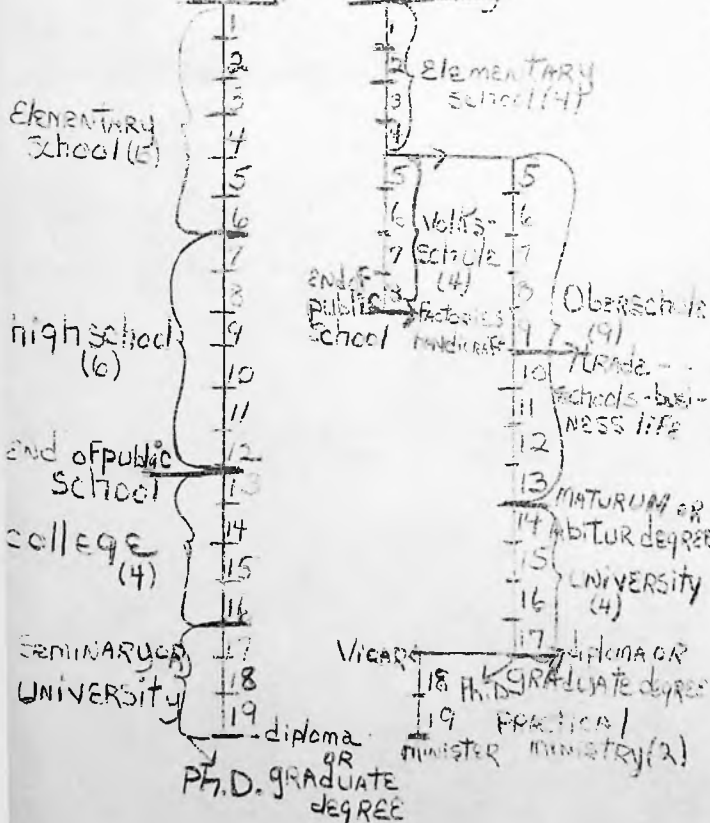 1
2
3
4
5
6
7
8
9
10
11
12
13
14
15
16
17
18
19
ELEMENTARY
School (6)
high school
(6)
END of public
School
college
(4)
SEMINARY OR
UNIVERSITY
diploma
OR
Ph.D. GRADUATE
DEGREE
1
2
3
4
ELEMENTARY
School (4)
5
6
7
8
Volks-
Schule
(4)
END OF
public
School
factories
handicraft
5
6
7
8
9
10
11
12
13
14
15
16
17
Oberschule
(9)
trade -
schools - busi-
NESS life
MATURUM OR
AbiTUR degree
UNIVERSITY
(4)
Vicar
diploma OR
Ph.D. GRADUATE degree
18
19
MINISTER
PRACTICAL
MINISTRY (2)